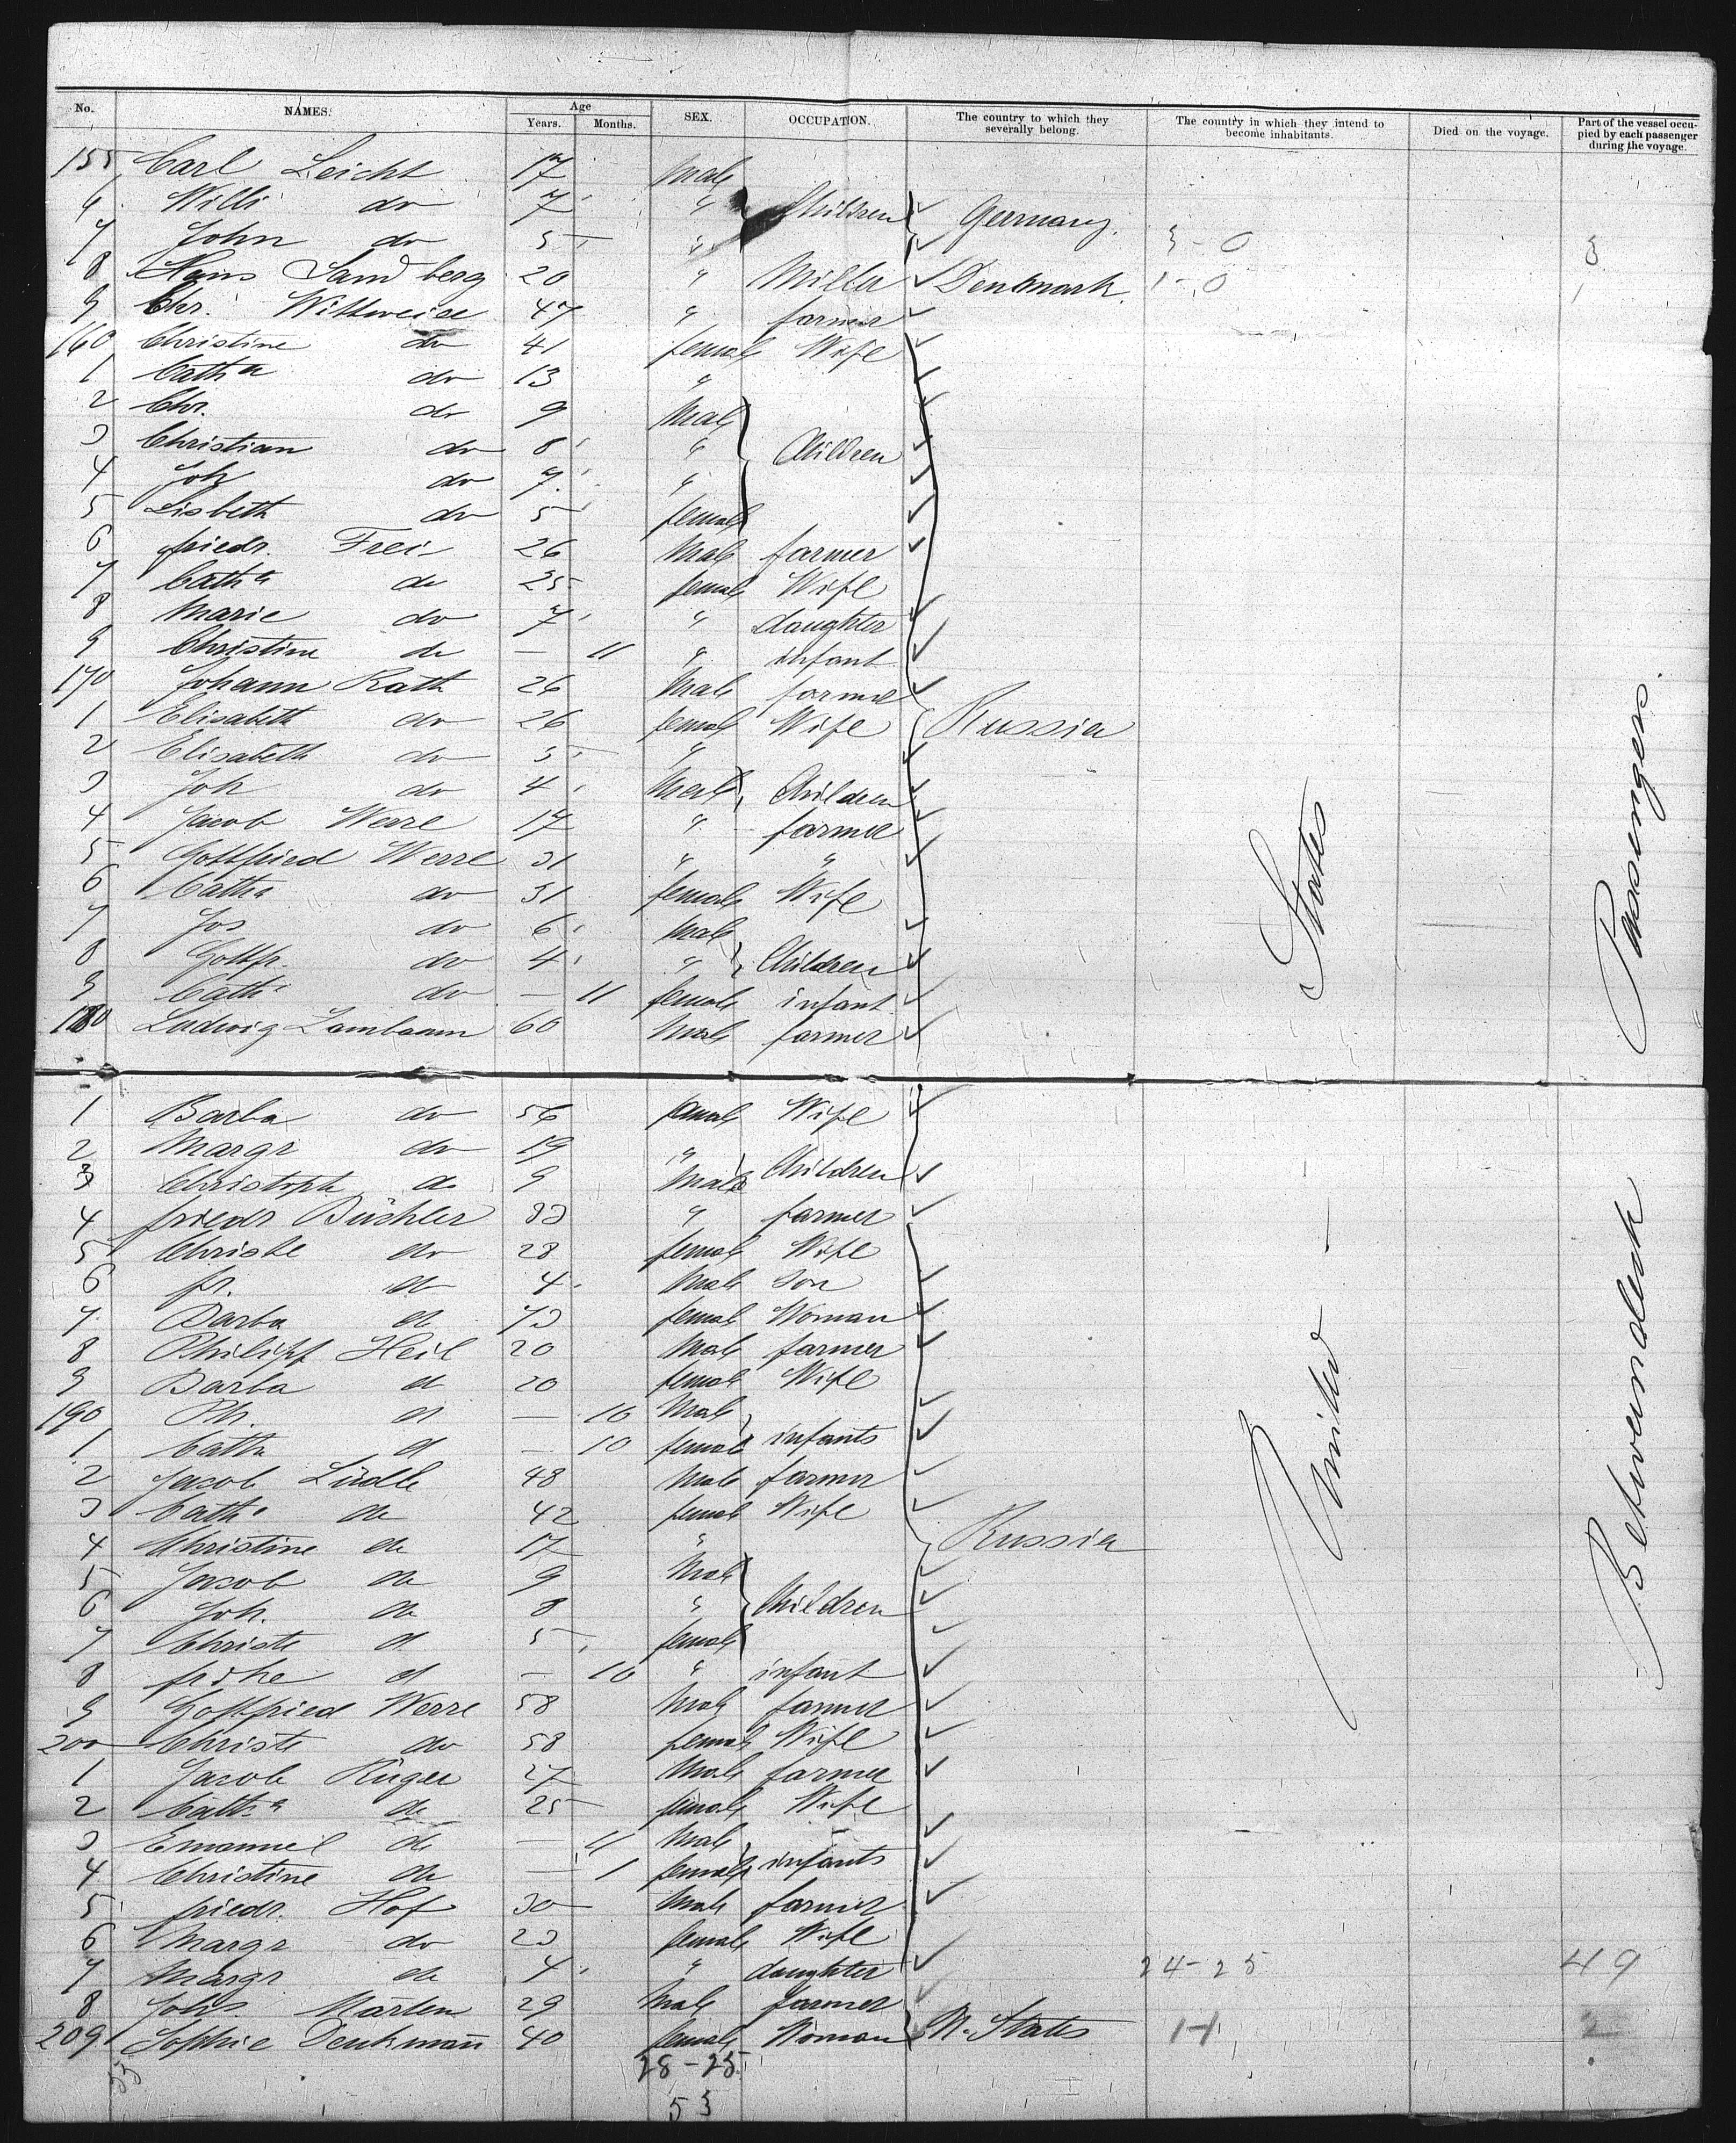 No. NAMES. Age Years. Months. SEX. OCCUPATION. The country to which they severally belong. The country in which they intend to become inhabitants. Died on the voyage. Part of the vessel occupied by each passenger during the voyage.
155 Carl Leicht 17 Male
6 Willi do 7 " Children Germany
7 John do 5 " 3-0 3
8 Hans Sandberg 20 " Miller Denkmark 1-0 1
9 Chr. 47 " farmer
160 Christine do 41 female Wife
1 Catha do 13 "
2 Chr. do 9 Male
3 Christian do 8 " Children
4 Joh do 7 "
5 Lisbeth do 5 female
6 friedr. Frei 26 Male farmer
7 Catha do 25 female Wife
8 Marie do 7 " daughter
9 Christine do — 11 " infant
170 Johann Rath 26 Male farmer
1 Elisabeth do 26 female Wife Russia
2 Elisabeth do 5 "
3 Joh do 4 Male Children
4 Jacob Werre 17 " farmer
5 Gottfried Werre 31 " "
6 Catha do 31 female Wife
7 Jos do 6 Male
8 Gottfr. do 4 " Children
9 Cath do — 11 female infant
180 Ludwig 60 Male farmer
1 Barba do 56 female Wife
2 Margr do 19 "
3 Christoph do 9 Male Children
4 friedr Büchler 33 " farmer
5 Christe do 28 female Wife
6 fr. do 4 Male Son
7 Barba do 73 female Woman
8 Philipp Heil 20 Male farmer
9 Barba do 20 female Wife
190 Ph. do — 10 Male
1 Catha do — 10 female infants
2 Jacob 48 Male farmer
3 Catha do 42 female Wife
4 Christine do 17 " Russia
5 Jacob do 9 Male
6 Joh. do 8 " Children
7 Christe do 5 female
8 do — 10 " infant
9 Gottfried Werre 58 Male farmer
200 Christe do 58 female Wife
1 Jacob Rüger 27 Male farmer
2 Catha do 25 female Wife
3 Emanuel do — 11 Male
4 Christine do — 1 female infants
5 friedr. Hof 30 Male farmer
6 Margr do 23 female Wife
7 Margr do 4 " daughter 24-25 49
8 Johs Märten 29 Male farmer
209 Sophie Denkmann 40 female Woman U. States 1-1 2
55 28-25
53
United States
Betweendeck Passengers.